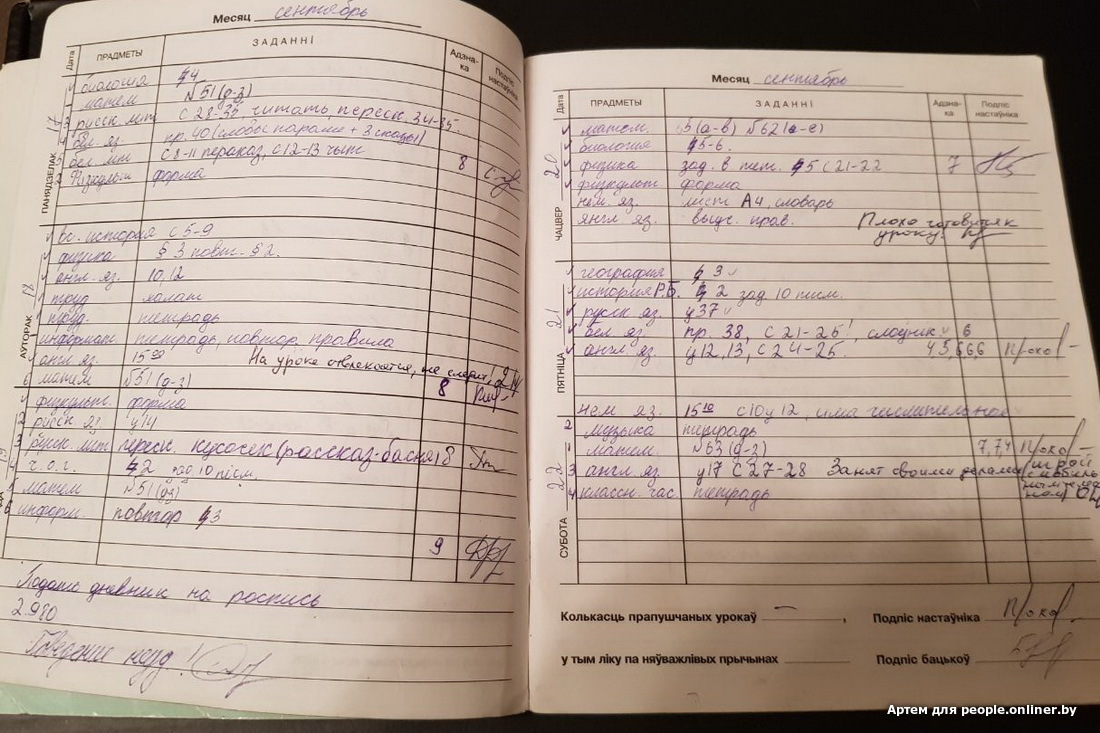 Месяц сентябрь
Дата ПРАДМЕТЫ ЗАДАННІ Адзнака Подпіс настаўніка
ПАНЯДЗЕЛАК 17
биология §4
матем. №51(д-з)
русск. лит. с 28-35, читать, переск. 34-35.
бел. яз. пр. 40 (словы парамі + 3 сказы)
бел. лит с 8-11 пераказ, с 12-13 чыт. 8
Физкульт форма
АЎТОРАК 18
вс. история с 5-9
физика § 3 повт. § 2.
англ. яз. 10, 12
труд халат
труд. тетрадь
информат. тетрадь, повтор. правила
англ. яз. 15 На уроке отвлекается, не следит!
матем №51(д-з) 8
физкульт. форма
русск. яз у14
русск. лит. переск. кусочек (рассказ-басня) 8
ч.о.г. §2 зад 10 пісм.
матем №51(д-з)
информ. повтор §3
9
Подать дневник на роспись
2.980
Поведение неуд!
Месяц сентябрь
Дата ПРАДМЕТЫ ЗАДАННІ Адзнака Подпіс настаўніка
ЧАЦВЕР 20
матем. (а-в) №62(а-е)
биология §5-6.
физика зад. в тет. §5 с 21-22 7
физкульт. форма
нем. яз. лист А4, словарь
англ. яз. выуч. прав. Плохо готовится к
уроку!
ПЯТНІЦА 21
география §3
история Р.Б. §2 зад. 10 писм.
русск. яз. у37
бел. яз. пр. 38, с 21-26! слоўнік 6
англ. яз. у12, 13, с 24-25 4 5,6,6,6
нем. яз. 15 с10 у 12, има числительное
СУБОТА 22
музыка тетрадь
матем. №63(д-з)
англ. яз. у17 с 27-28 Занят своими делами
классн. час тетрадь
Колькасць прапушчаных урокаў — , Подпіс настаўніка
у тым ліку па няўважлівых прычынах Подпіс бацькоў
Артем для people.onliner.by